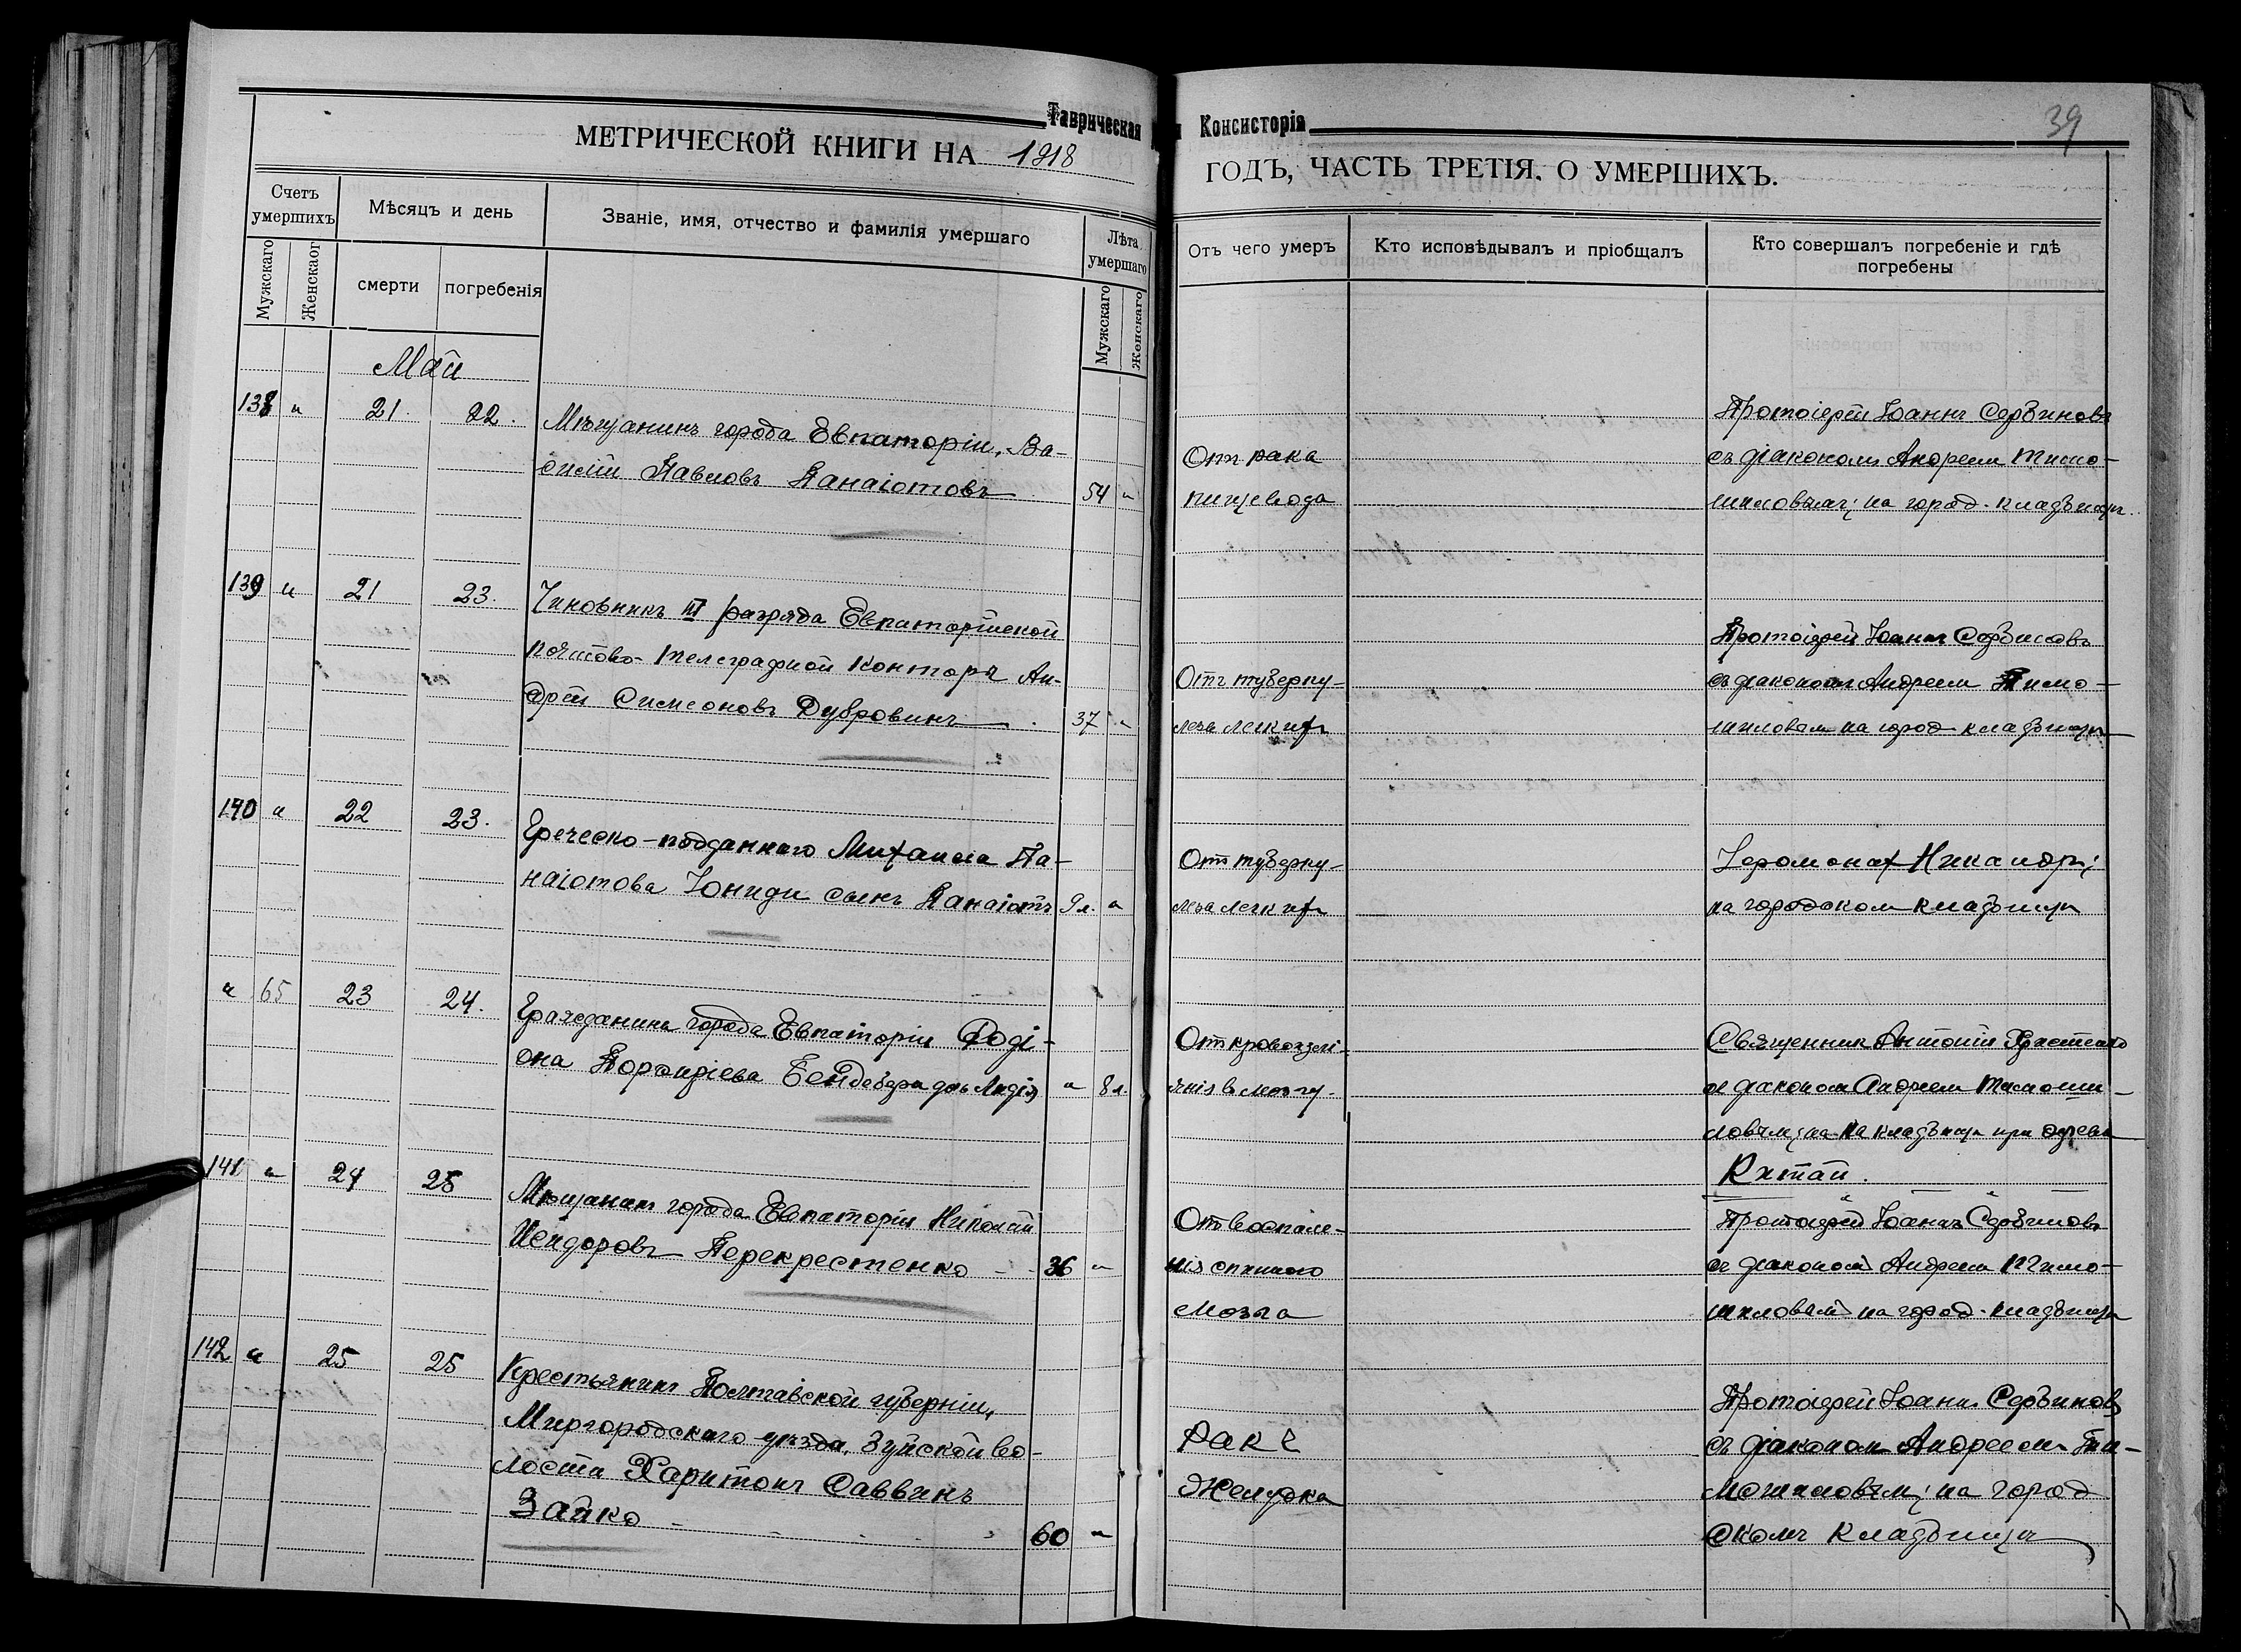 Таврическая
Консисторія
39
МЕТРИЧЕСКОЙ КНИГИ НА 1918
ГОДЪ, ЧАСТЬ ТРЕТІЯ. О УМЕРШИХЪ.
Счетъ умершихъ
Мѣсяцъ и день
Званіе, имя, отчество и фамилія умершаго
Лѣта умершаго
Отъ чего умеръ
Кто исповѣдывалъ и пріобщалъ
Кто совершалъ погребеніе и гдѣ
погребены
Мужскаго
Женскаог
смерти
погребенія
Мужскаго
Женскаго
Май
138 " 21. 22.
Мѣщанинъ города Евпаторіи, Ва-
силій Павловъ Панаіотовъ 54 "
Отъ рака
пищевода
Протоіерей Іоаннъ Сербиновъ
съ діакономъ Андреем Тимо-
шиловымъ; на город. кладбищѣ.
139 " 21 23.
Чиновникъ III разряда Евпаторійской
почтово-телеграфной конторы Ан-
дрей Симеоновъ Дубровинъ 37 "
Отъ туберку-
леза легкихъ
Протоіерей Іоаннъ Сербиновъ
съ діакономъ Андреем Тимо-
шиловым на город кладбищѣ
140 " 22 23.
Греческо-подданнаго Михаила Па-
наіотова Іониди сынъ Панаіотъ 9 л. "
Отъ туберку-
леза легкихъ
Іеромонах Никандръ;
на городском кладбищѣ
" 65 23 24.
Гражданина города Евпаторіи Родi-
она Порфиріева дочь Лидія " 8 л.
От кровоизлі-
янія в мозгу.
Священник Антоній
съ діаконом Андреем Тимоши-
ловым; на кладбищѣ при
141 " 24 25
Мѣщанин города Евпаторіи Николай
Исидоровъ Перекрестенко 36 "
От воспале-
нія спинного
мозга
Протоіерей Іоаннъ Сербиновъ
съ діаконом Андреем Тимо-
шиловым на город. кладбищѣ
142 " 25 25
Крестьянин Полтавской губерніи,
Миргородскаго уѣзда, Зуйской во-
лости Харитонъ Саввинъ
Зайко 60 "
Ракъ
Желудка
Протоіерей Іоаннъ Сербиновъ
съ діаконом Андреем Ти-
мошиловым; на город
скомъ кладбищѣ